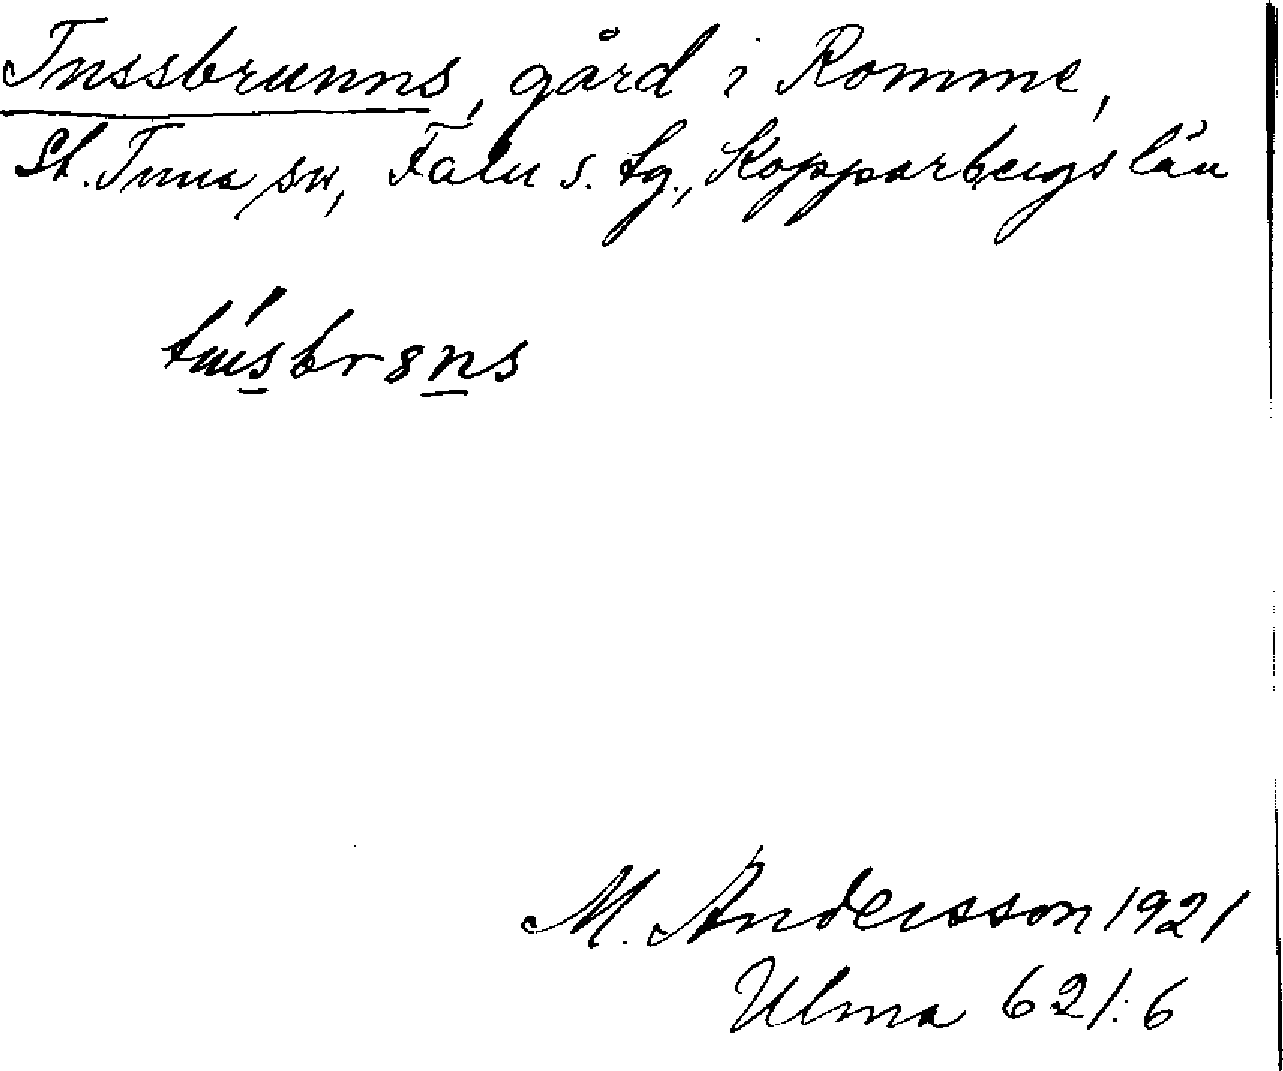 Tussbrunns, gård i Romme,
St. Tuna sn, Falu s. tg., Kopparbergs län
M. Andersson 1921
Ulma 621:6